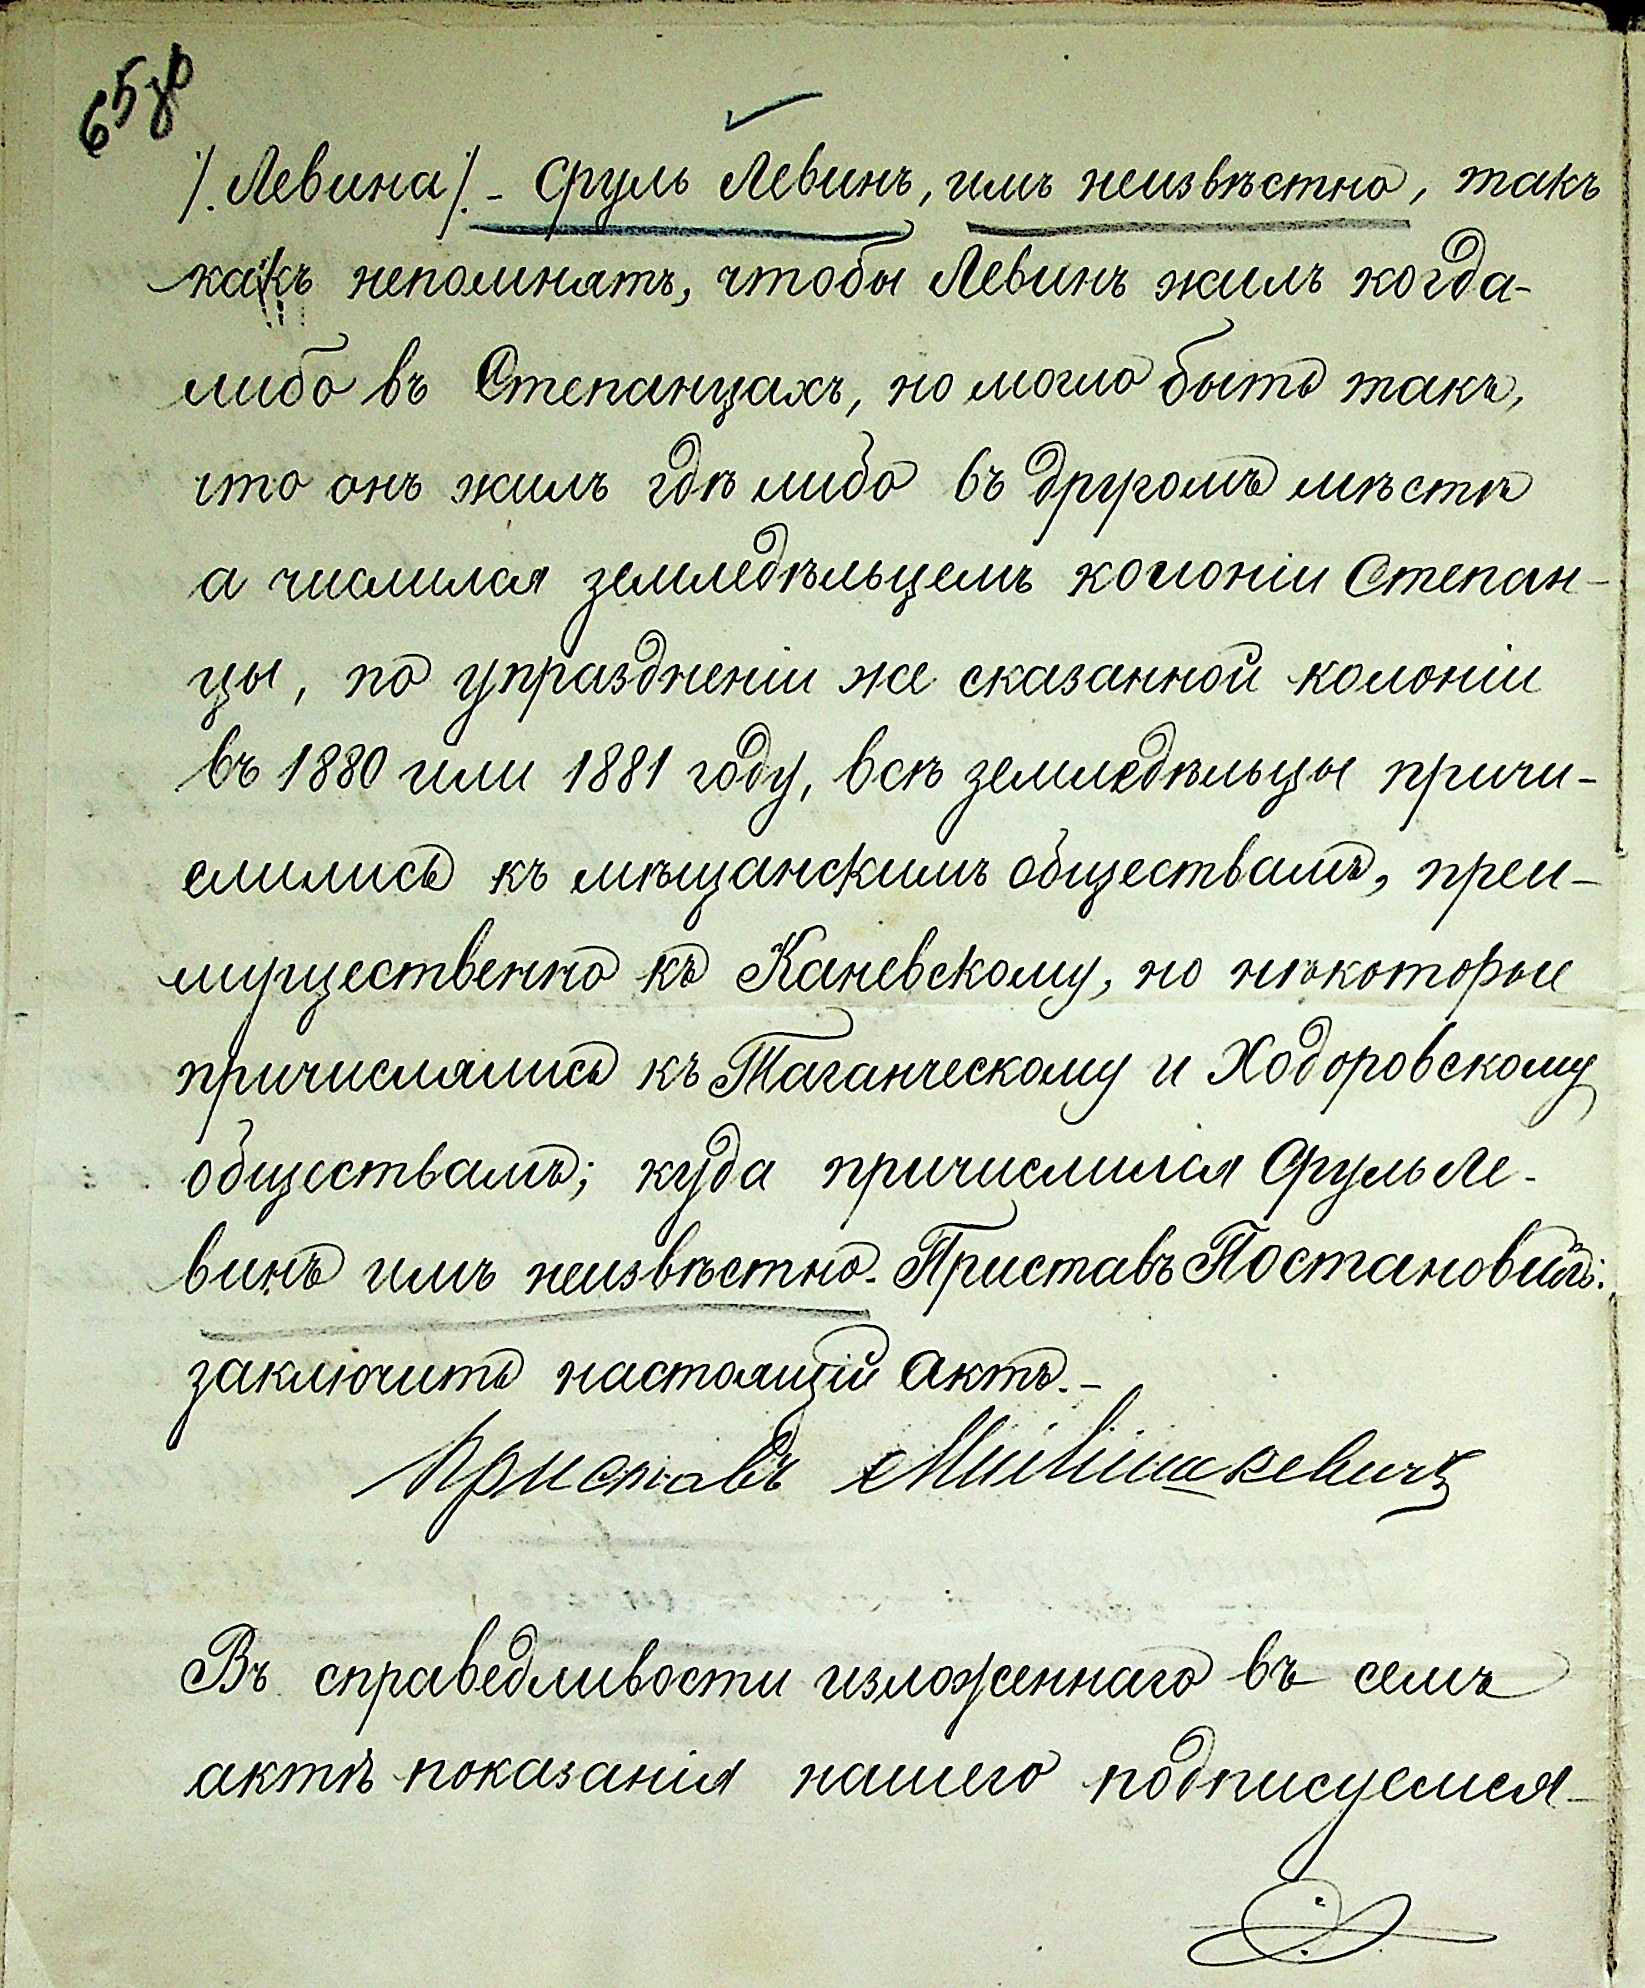 65 об
/. Левина /. - Сруль Левинъ, имъ неизвѣстно, такъ
какъ непомнятъ, чтобы Левинъ жилъ когда-
либо въ Степанцахъ, но могло быть такъ,
что онъ жилъ гдѣ либо въ другомъ мѣстѣ
а числился земледѣльцемъ колоніи Степан-
цы, по упраздненіи же сказанной колоніи
въ 1880 или 1881 году, всѣ земледѣльцы причи-
слились къ мѣщанскимъ обществамъ, преи-
мущественно къ Каневскому, но нѣкоторые
причислялись къ Таганческому и Ходоровскому
обществамъ; куда причислился Сруль Ле-
винъ имъ неизвѣстно. Приставъ Постановилъ:
заключить настоящій актъ. -
Приставъ
Въ справедливости изложеннаго въ семъ
актѣ показанія нашего подписуемся -